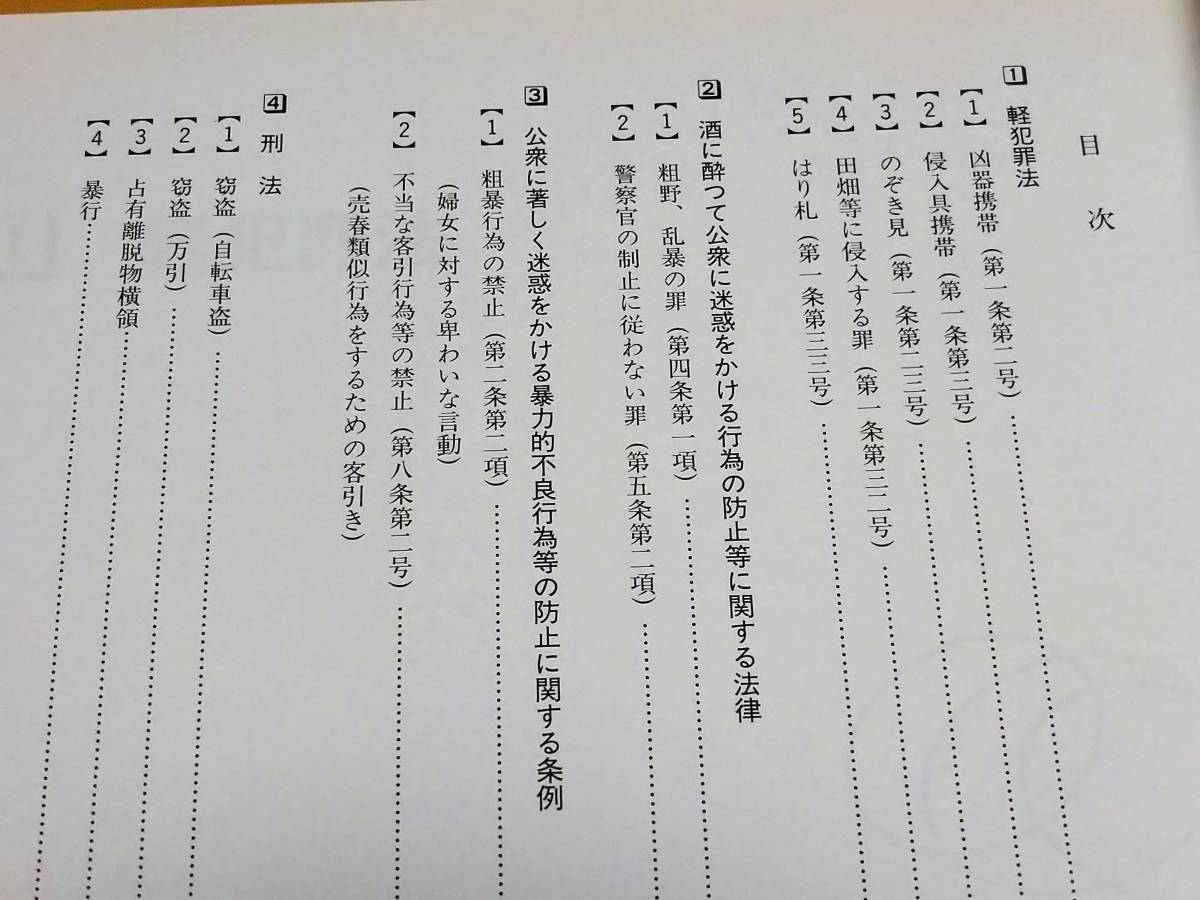 目次
1 軽犯罪法
【1】 凶器携帯（第一条第二号）……………………
【2】 侵入具携帯（第一条第三号）……………………
【3】 のぞき見（第一条第二三号）……………………
【4】 田畑等に侵入する罪（第一条第三二号）……………………
【5】 はり札（第一条第三三号）……………………
2 酒に酔つて公衆に迷惑をかける行為の防止等に関する法律
【1】 粗野、乱暴の罪（第四条第一項）……………………
【2】 警察官の制止に従わない罪（第五条第二項）……………………
3 公衆に著しく迷惑をかける暴力的不良行為等の防止に関する条例
【1】 粗暴行為の禁止（第二条第二項）……………………
（婦女に対する卑わいな言動）
【2】 不当な客引行為等の禁止（第八条第二号）……………………
（売春類似行為をするための客引き）
4 刑法
【1】 窃盗（自転車盗）……………………
【2】 窃盗（万引）……………………
【3】 占有離脱物横領……………………
【4】 暴行……………………